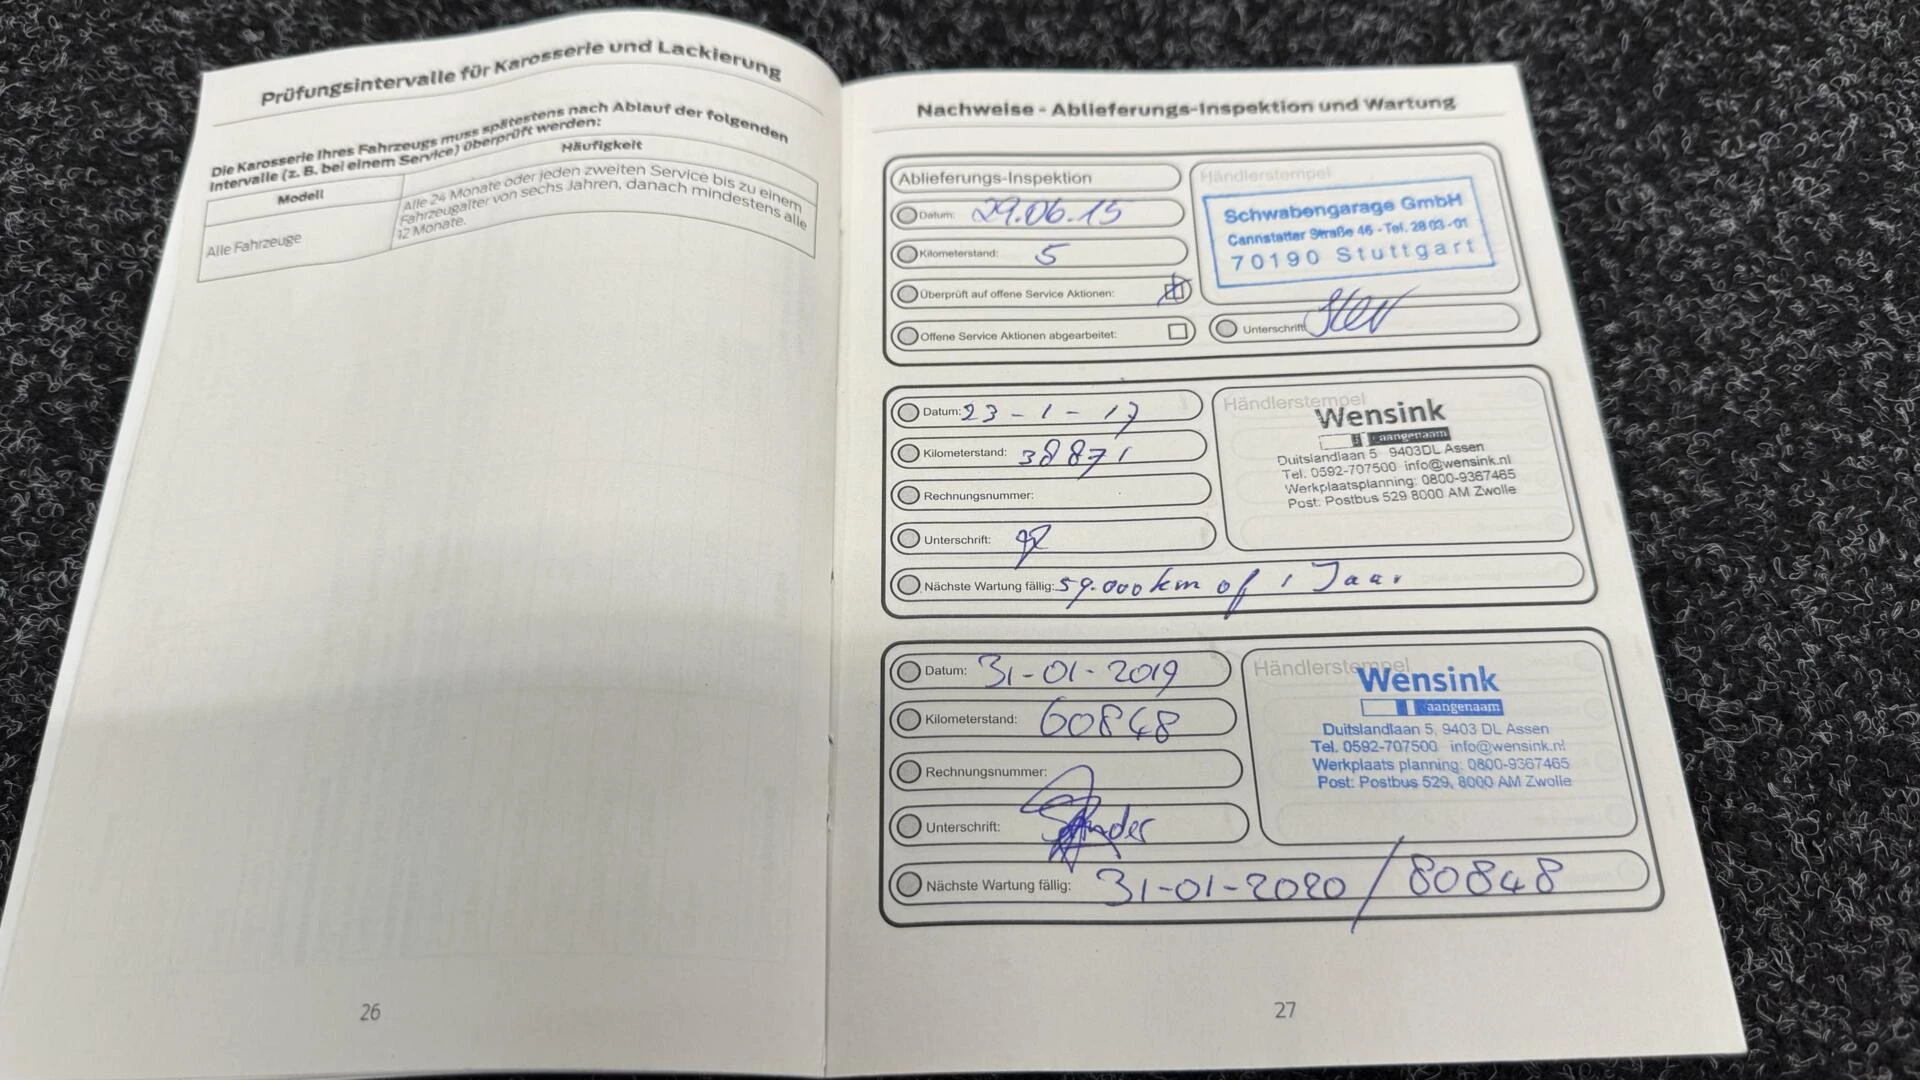 Prüfungsintervalle für Karosserie und Lackierung
Die Karosserie Ihres Fahrzeugs muss spätestens nach Ablauf der folgenden
Intervalle (z. B. bei einem Service) überprüft werden:
Modell
Häufigkeit
Alle Fahrzeuge
Alle 24 Monate oder jeden zweiten Service bis zu einem
Fahrzeugalter von sechs Jahren, danach mindestens alle
12 Monate.
26
Nachweise - Ablieferungs-Inspektion und Wartung
Ablieferungs-Inspektion
Datum: 29.06.15
Kilometerstand: 5
Überprüft auf offene Service Aktionen:
Offene Service Aktionen abgearbeitet:
Händlerstempel
Schwabengarage GmbH
Cannstatter Straße 46 - Tel. 28 03 -01
70190 Stuttgart
Unterschrift
Datum: 23 - 1 - 17
Kilometerstand: 38871
Rechnungsnummer:
Unterschrift:
Nächste Wartung fällig: 59.000 km of 1 Jaar
Händlerstempel
Wensink
aangenaam
Duitslandlaan 5 9403DL Assen
Tel. 0592-707500 info@wensink.nl
Werkplaatsplanning: 0800-9367465
Post: Postbus 529 8000 AM Zwolle
Datum: 31-01-2019
Kilometerstand: 60848
Rechnungsnummer:
Unterschrift:
Nächste Wartung fällig: 31-01-2020 / 80848
Händlerstempel
Wensink
aangenaam
Duitslandlaan 5, 9403 DL Assen
Tel. 0592-707500 info@wensink.nl
Werkplaats planning: 0800-9367465
Post: Postbus 529, 8000 AM Zwolle
27